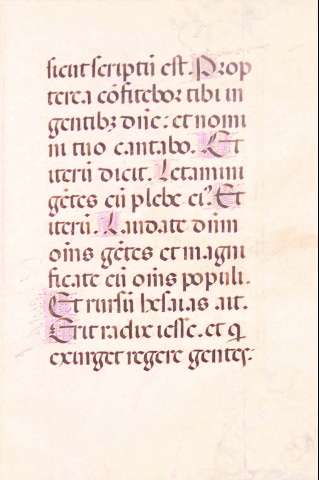 sicut scriptū est. Prop
terea cōfitebor tibi in
gentibꝫ dñe: et nomi
ni tuo cantabo. Et
iterū dicit. Letamini
gētes cū plebe ei⁹. Et
iterū. Laudate dñm
oēs gētes et magni
ficate eū oēs populi.
Et rursū hesaias ait.
Erit radix iesse. et q̄
exurget regere gentes.